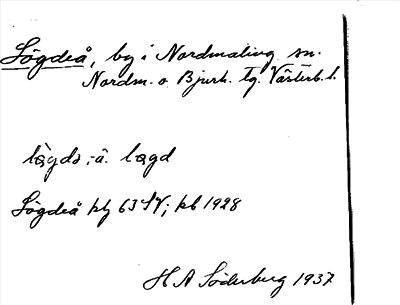 Lögdeå, by i Nordmaling sn.
Nordm. o. Bjurh. tg. Västerb. l.
lø̀gdə ; -å. lægd
Lögdeå kbg 63 SV; kb 1928
H A Söderberg 1937